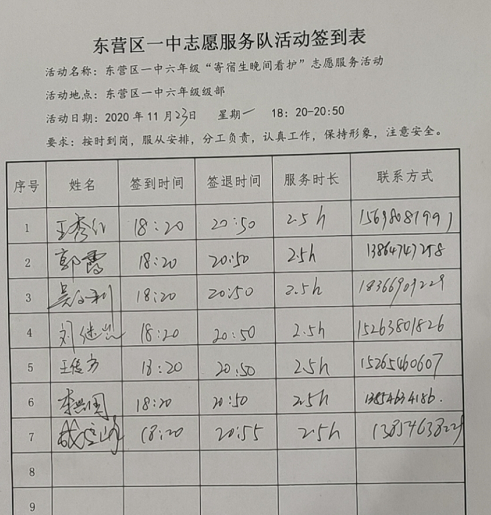 东营区一中志愿服务队活动签到表
活动名称：东营区一中六年级“寄宿生晚间看护”志愿服务活动
活动地点：东营区一中六年级级部
活动日期：2020 年 11 月 23日 星期一 18：20-20:50
要求：按时到岗，服从安排，分工负责，认真工作，保持形象，注意安全。
序号 姓名 签到时间 签退时间 服务时长 联系方式
1 王秀 18:20 20:50 2.5h 15698081991
2 郭霞 18:20 20:50 2.5h 13864747258
3 吴 利 18:20 20:50 2.5h 18366909229
4 刘继 18:20 20:50 2.5h 15263801826
5 王 18:20 20:50 2.5h 15265460607
6 李 国 18:20 20:50 2.5h
7 18:20 20:55 2.5h
8
9